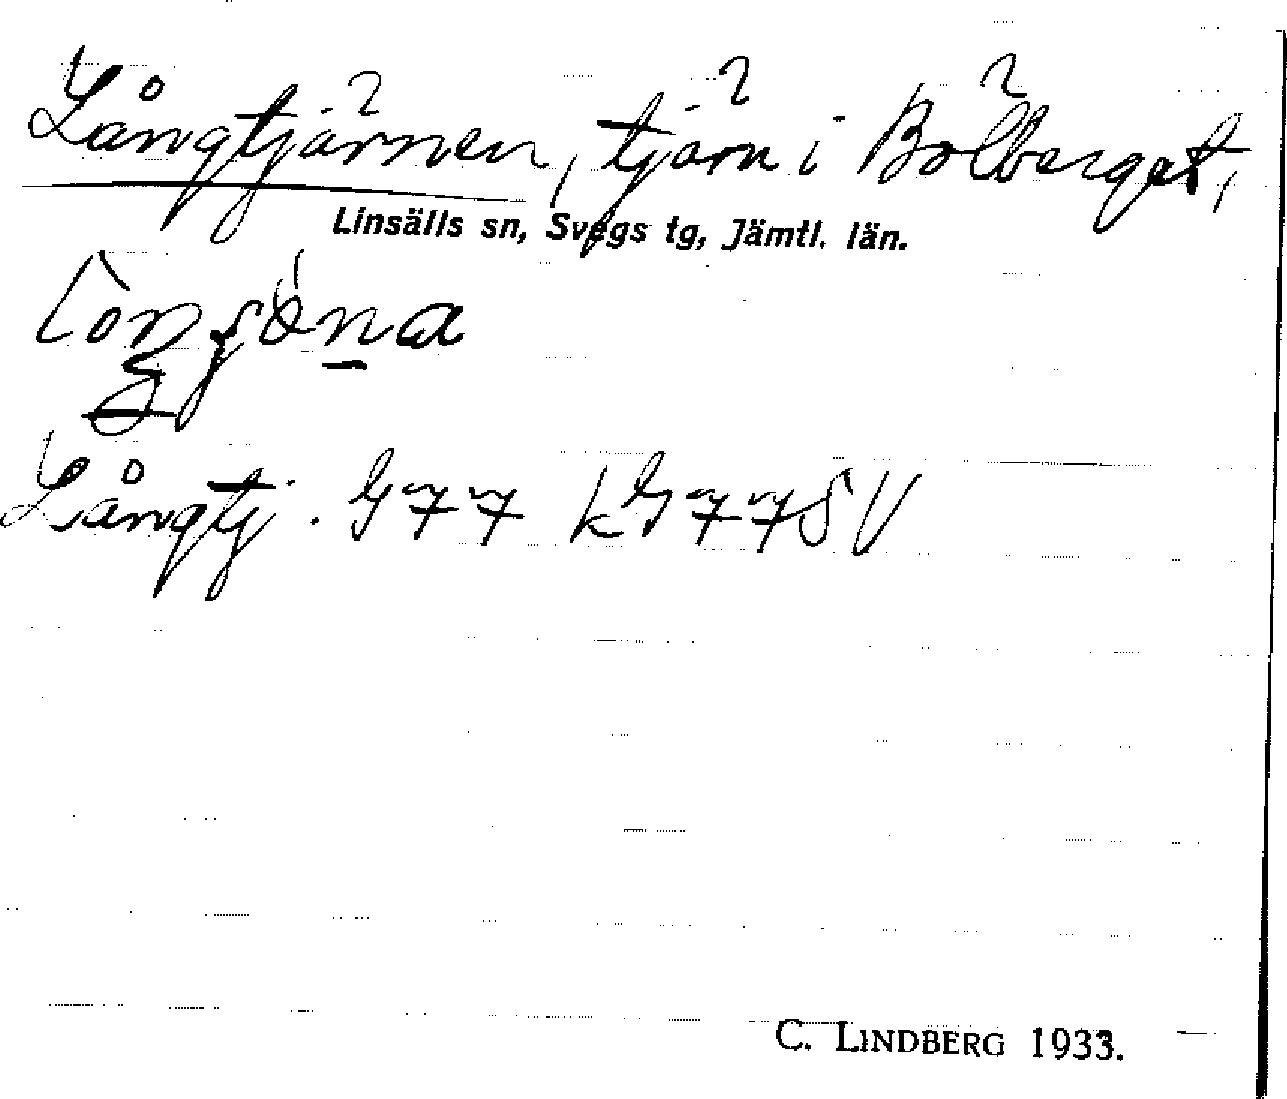 Långtjärnen, tjärn i Bölberget,
Linsälls sn, Svegs tg, Jämtl. län.
Långtj. G77 kG77SV
C. LINDBERG 1933.